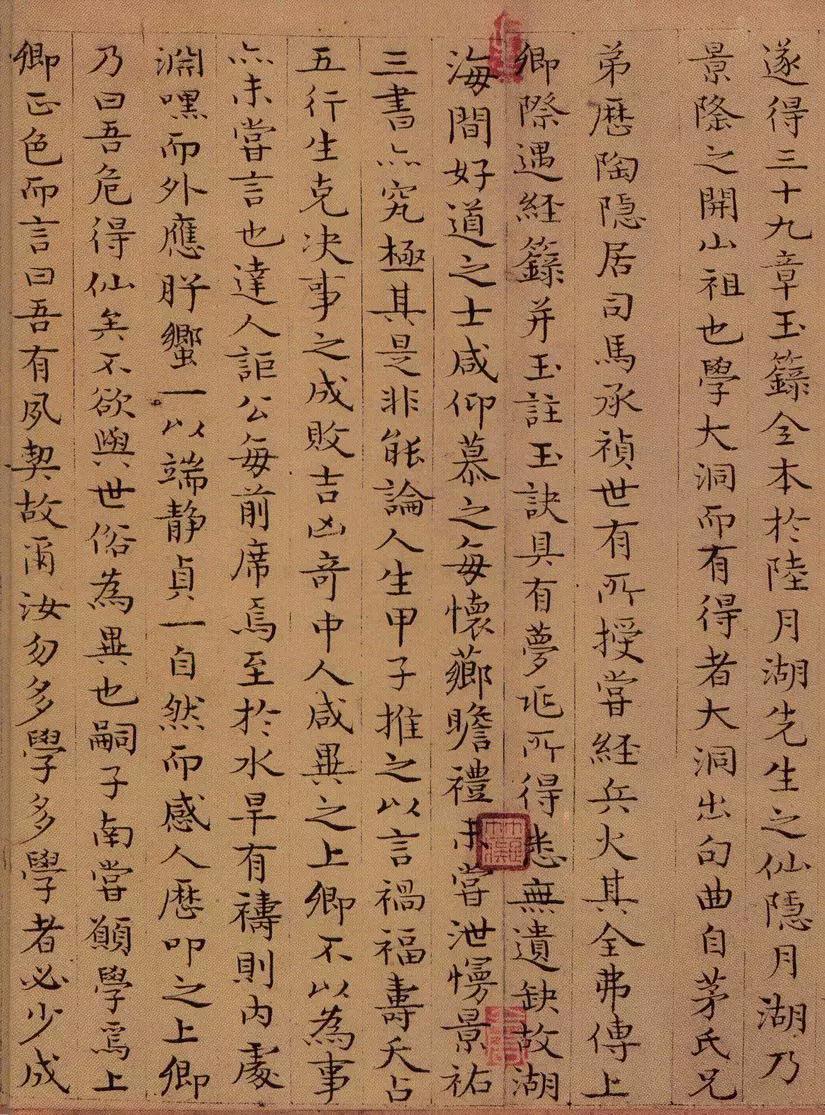 遂得三十九章玉籙全本於陸月湖先生之仙隱月湖乃
景隆之開山祖也學大洞而有得者大洞出句曲自茅氏兄
弟歷陶隱居司馬承禎世有所授嘗經兵火其全弗傳上
卿際遇経籙并玉註玉訣具有夢兆所得悉無遺缺故湖
海間好道之士咸仰慕之每懷薌瞻禮未嘗泄慢景祐
三書亦究極其是非能論人生甲子推之以言禍福壽夭占
五行生克决事之成敗吉凶竒中人咸異之上卿不以為事
亦未嘗言也達人詎公每前席焉至於水旱有禱則内處
淵嘿而外應肸蠁一以端静貞一自然而感人歷叩之上卿
乃曰吾危得仙矣不欲與世俗為異也嗣子南嘗願學焉上
卿正色而言曰吾有夙契故爾汝勿多學多學者必少成